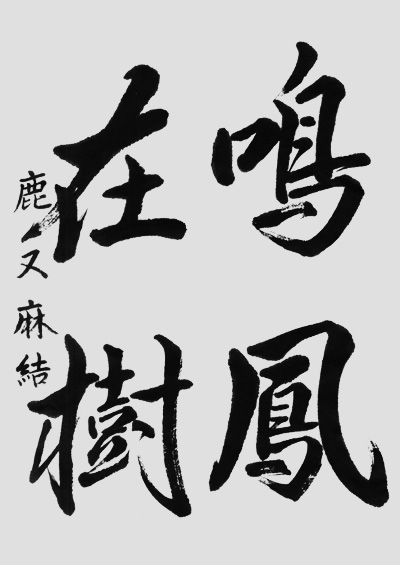 鳴鳳
在樹
鹿又麻結